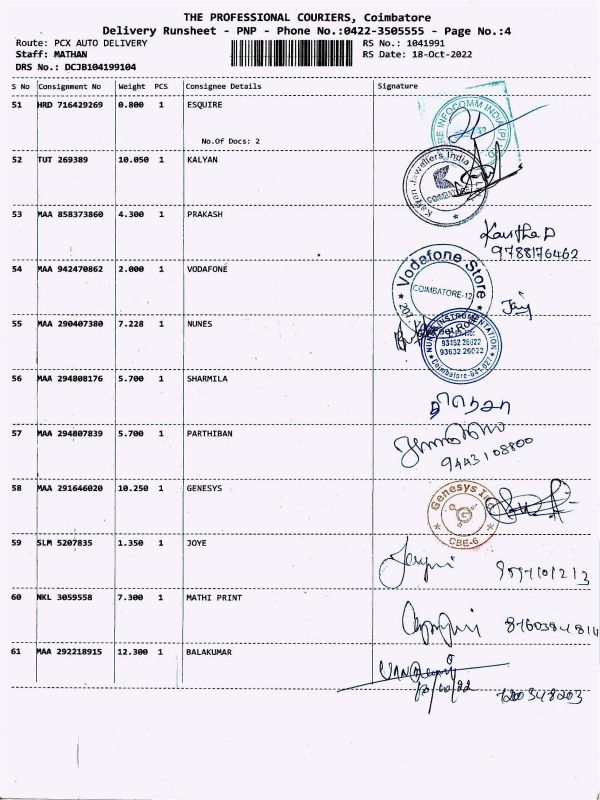 THE PROFESSIONAL COURIERS, Coimbatore
Delivery Runsheet - PNP - Phone No.:0422-3505555 - Page No.:4
Route: PCX AUTO DELIVERY RS No.: 1041991
Staff: MATHAN RS Date: 18-Oct-2022
DRS No.: DCJB104199104
S No Consignment No Weight PCS Consignee Details Signature
51 HRD 716429269 0.800 1 ESQUIRE
INFOCOMM INDIA (P)
No.Of Docs: 2
52 TUT 269389 10.050 1 KALYAN
Kalyan Jewellers India
COIMBATORE
53 MAA 858373860 4.300 1 PRAKASH
Kavitha D
9788176462
54 MAA 942470862 2.000 1 VODAFONE
Vodafone Store
COIMBATORE-12
207
55 MAA 290407380 7.228 1 NUNES
NUNES INSTRUMENTATION
93452 26022
93632 26022
Coimbatore-641 027
56 MAA 294808176 5.700 1 SHARMILA
57 MAA 294807839 5.700 1 PARTHIBAN
9443108800
58 MAA 291646020 10.250 1 GENESYS
Genesys
G
CBE-6
59 SLM 5207835 1.350 1 JOYE
60 NKL 3059558 7.300 1 MATHI PRINT
61 MAA 292218915 12.300 1 BALAKUMAR